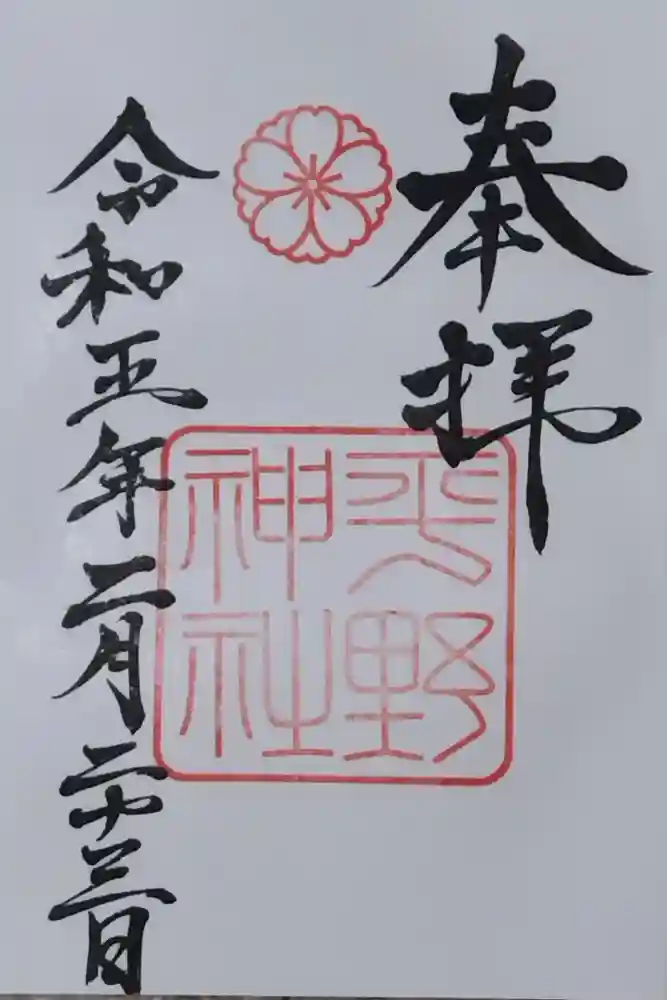 奉拝
平野神社
令和五年二月二十三日